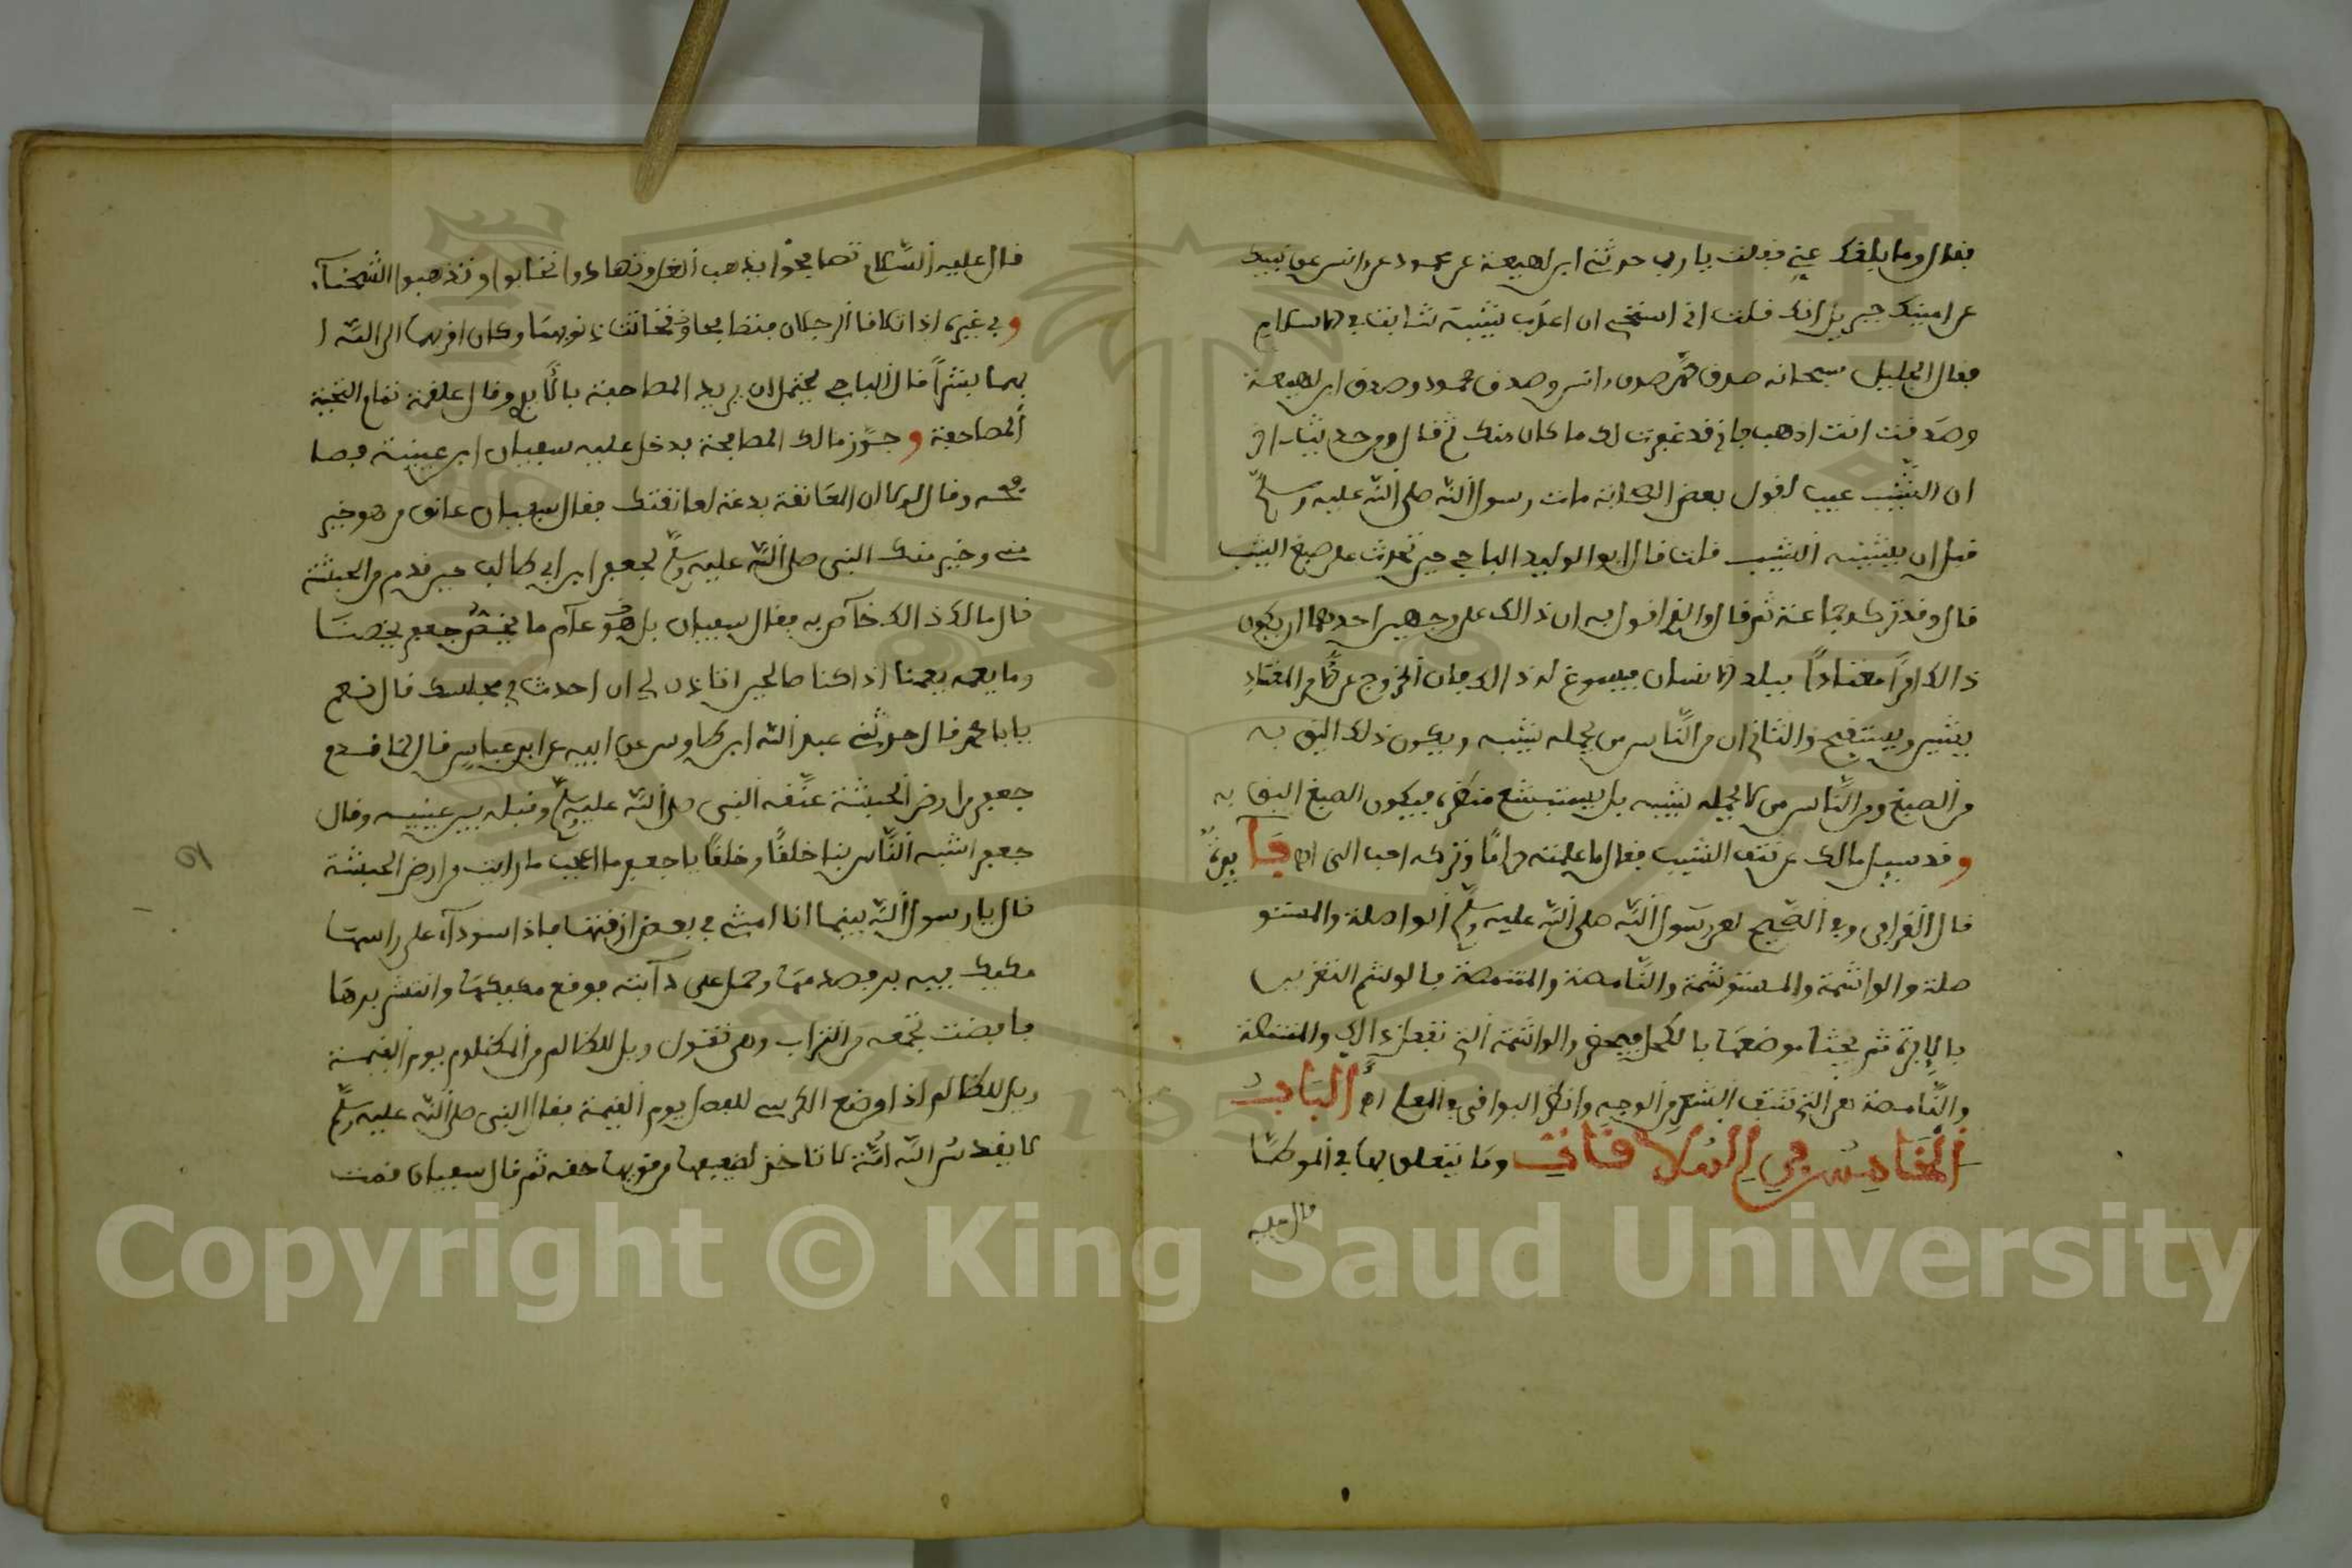 فقال وما بلغك عني فقلت يا رب حدثني ابن لهيعة عن محمود عن انس عن نبيك
عن امينك جبريل انك قلت اني استحيي ان اعذب شيبة شابت في الاسلام
فقال الجليل سبحانه صدق محمد صدق انس وصدق محمود وصدق ابن لهيعة
وصدقت انت اذهب فاني قد غفرت لك ما كان منك ثم قال
ان الشيب عيب لقول بعض الصحابة مات رسول الله صلى الله عليه وسلم
قبل ان يشينه الشيب قلت قال ابو الوليد الباجي حين تحدث على صبغ الشيب
قال وقد تركه جماعة ثم قال والذي اقول به ان ذالك على وجهين احدهما ان يكون
ذالك امرا معتادا ببلد الانسان فيسوغ له ذالك فان الخروج عن الامر المعتاد
يشهر ويستقبح والثاني ان من الناس من يجمله شيبه ويكون ذلك اليق به
من الصبغ ومن الناس من لا يجمله شيبه بل يستبشع منظره فيكون الصبغ اليق به
وقد سيل مالك عن نتف الشيب فقال ما علمته حراما وتركه احب الي اه
قال القرافي وفي الصحيح لعن رسول الله صلى الله عليه وسلم الواصلة والمستو
صلة والواشمة والمستوشمة والنامصة والمتنمصة فالوشم التغريز
بالابرة ثم يحشا موضعها بالكحل والواشمة التي تفعل ذالك
والنامصة هي التي تنتف الشعر من الوجه وانظر البواقي في المعلم اه الباب
الخامس في الملاقات وما يتعلق بها في الموطا
قال عليه
قال عليه السلام تصافحوا يذهب الغل وتهادوا تحابوا وتذهبوا الشحناء
وفي غيره اذا تلاقا الرجلان فتصافحا تحاتت ذنوبهما وكان اقربهما الى الله ا
بهما بشرا قال الباجي يحتمل ان يريد المصافحة بالايد وقال علقمة تمام التحية
المصافحة وجوز مالك المصافحة فدخل عليه سفيان ابن عيينة فصا
فحه وقال لولا ان المعانقة بدعة لعانقتك فقال سفيان عانق من هو خير
مني وخير منك النبي صلى الله عليه وسلم لجعفر ابن ابي طالب حين قدم من الحبشة
قال مالك ذالك خاص به فقال سفيان بل هو عام ما يخص جعفر يخصنا
وما يعمه يعمنا اذا كنا صالحين اتاذن لي ان احدث في مجلسك قال نعم
يابا محمد قال حدثني عبد الله ابن طاوس عن ابيه عن ابن عباس قال لما قدم
جعفر من ارض الحبشة عنقه النبي صلى الله عليه وسلم وقبله بين عينيه وقال
جعفر اشبه الناس بنا خلقا وخلقا يا جعفر ما اعجب ما رايت من ارض الحبشة
قال يا رسول الله بينما انا امشي في بعض ازقتها فاذا سوداء على راسها
مكتل فيه بر فصدمها رجل على دابته فوقع مكتلها وانتشر برها
فاقبلت تجمعه من التراب وهي تقول ويل للظالم من المظلوم يوم القيمة
ويل للظالم اذا وضع الكرسي للفصل يوم القيمة فقال النبي صلى الله عليه وسلم
لا يقدس الله امة لا تاخذ لضعيفها من قويها حقه ثم قال سفيان قدمت
Copyright © King Saud University